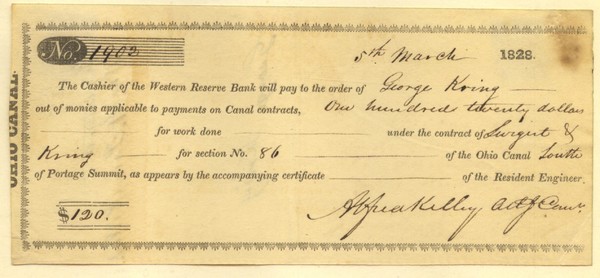 OHIO CANAL.
No. 1902
5th March 1828.
The Cashier of the Western Reserve Bank will pay to the order of George Kring
out of monies applicable to payments on Canal contracts, One hundred twenty dollars
for work done under the contract of Surgert &
Kring for section No. 86 of the Ohio Canal South
of Portage Summit, as appears by the accompanying certificate of the Resident Engineer.
$120.
Alfred Kelley Actg Comr.